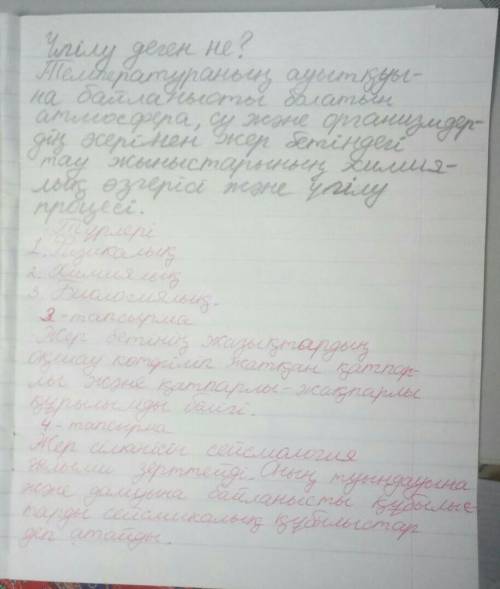 Үгілу деген не?
Температураның ауытқуы-
на байланысты болатын
атмосфера, су және организмдер-
дің әсерінен жер бетіндегі
тау жыныстарының химия-
лық өзгерісі және үгілу
процесі.
Түрлері
1. Физикалық
2. Химиялық
3. Биологиялық.
3-тапсырма
Жер бетінің жазықтардың
оқшау көтеріліп жатқан қатпар-
лы және қатпарлы-жақпарлы
құрылымды бөлігі.
4-тапсырма
Жер сілкінісі сейсмология
ғылыми зерттейді. Оның туындауына
және дамуына байланысты құбылыс-
тарды сейсмикалық құбылыстар
деп атайды.